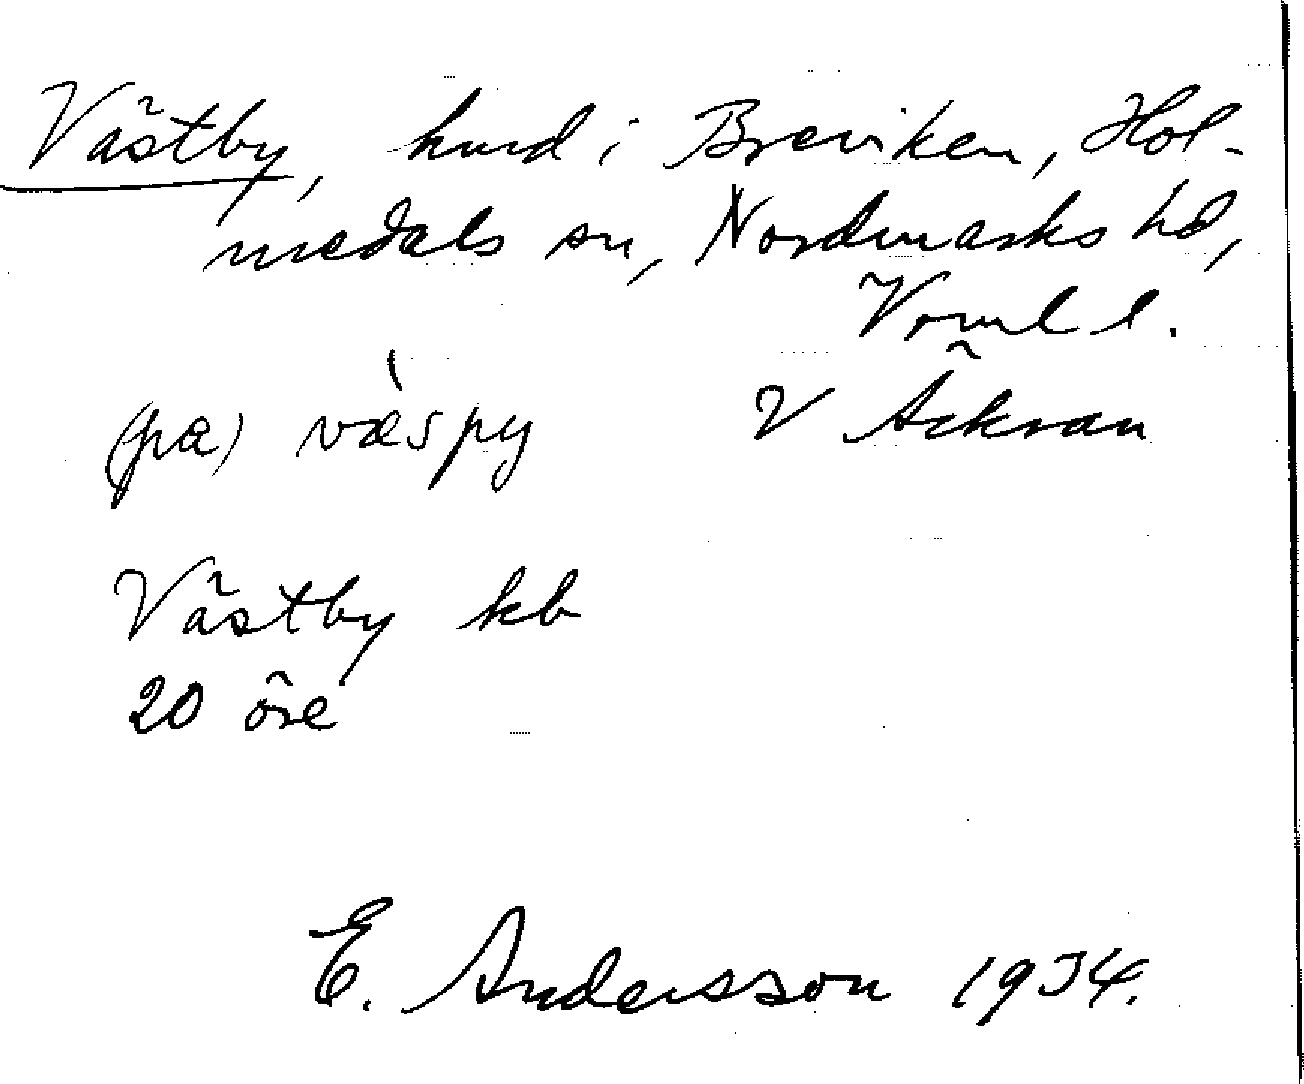 Västby, hmd i Breviken, Hol-
medals sn, Nordmarks hd,
Vrml l.
(pa) væspy V Äckran
Västby kb
20 öre
E. Andersson 1934.